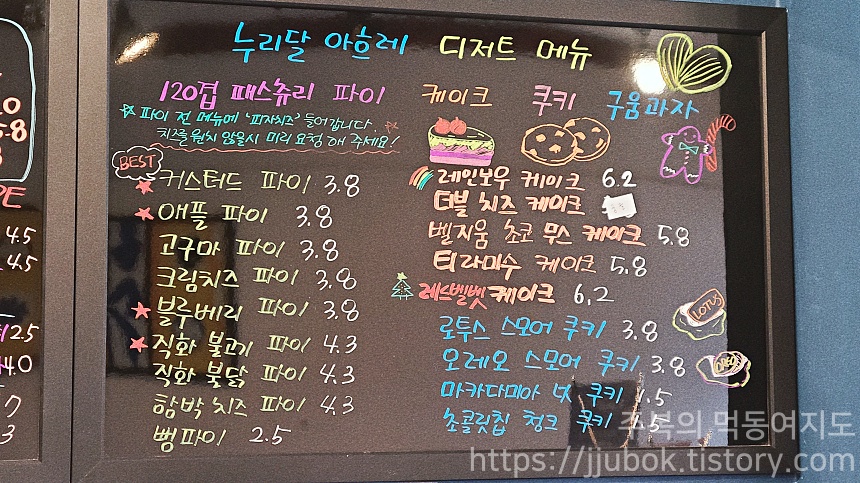 누리달 아흐레 디저트 메뉴
120겹 패스츄리 파이
파이 전 메뉴에 '피자치즈' 들어갑니다.
치즈를 원치 않을시 미리 요청해 주세요!
BEST
커스터드 파이 3.8
애플 파이 3.8
고구마 파이 3.8
크림치즈 파이 3.8
블루베리 파이 3.8
직화 불고기 파이 4.3
직화 불닭 파이 4.3
함박 치즈 파이 4.3
뻥파이 2.5
케이크 쿠키 구움과자
레인보우 케이크 6.2
더블 치즈 케이크
벨지움 초코 무스 케이크 5.8
티라미수 케이크 5.8
레드벨벳 케이크 6.2
로투스 스모어 쿠키 3.8
오레오 스모어 쿠키 3.8
마카다미아 넛 쿠키 .5
초콜릿칩 청크 쿠키 .5
LOTUS
OREO
4.5
4.5
2.5
4.0
7
3
주복의 먹동여지도
https://jjubok.tistory.com